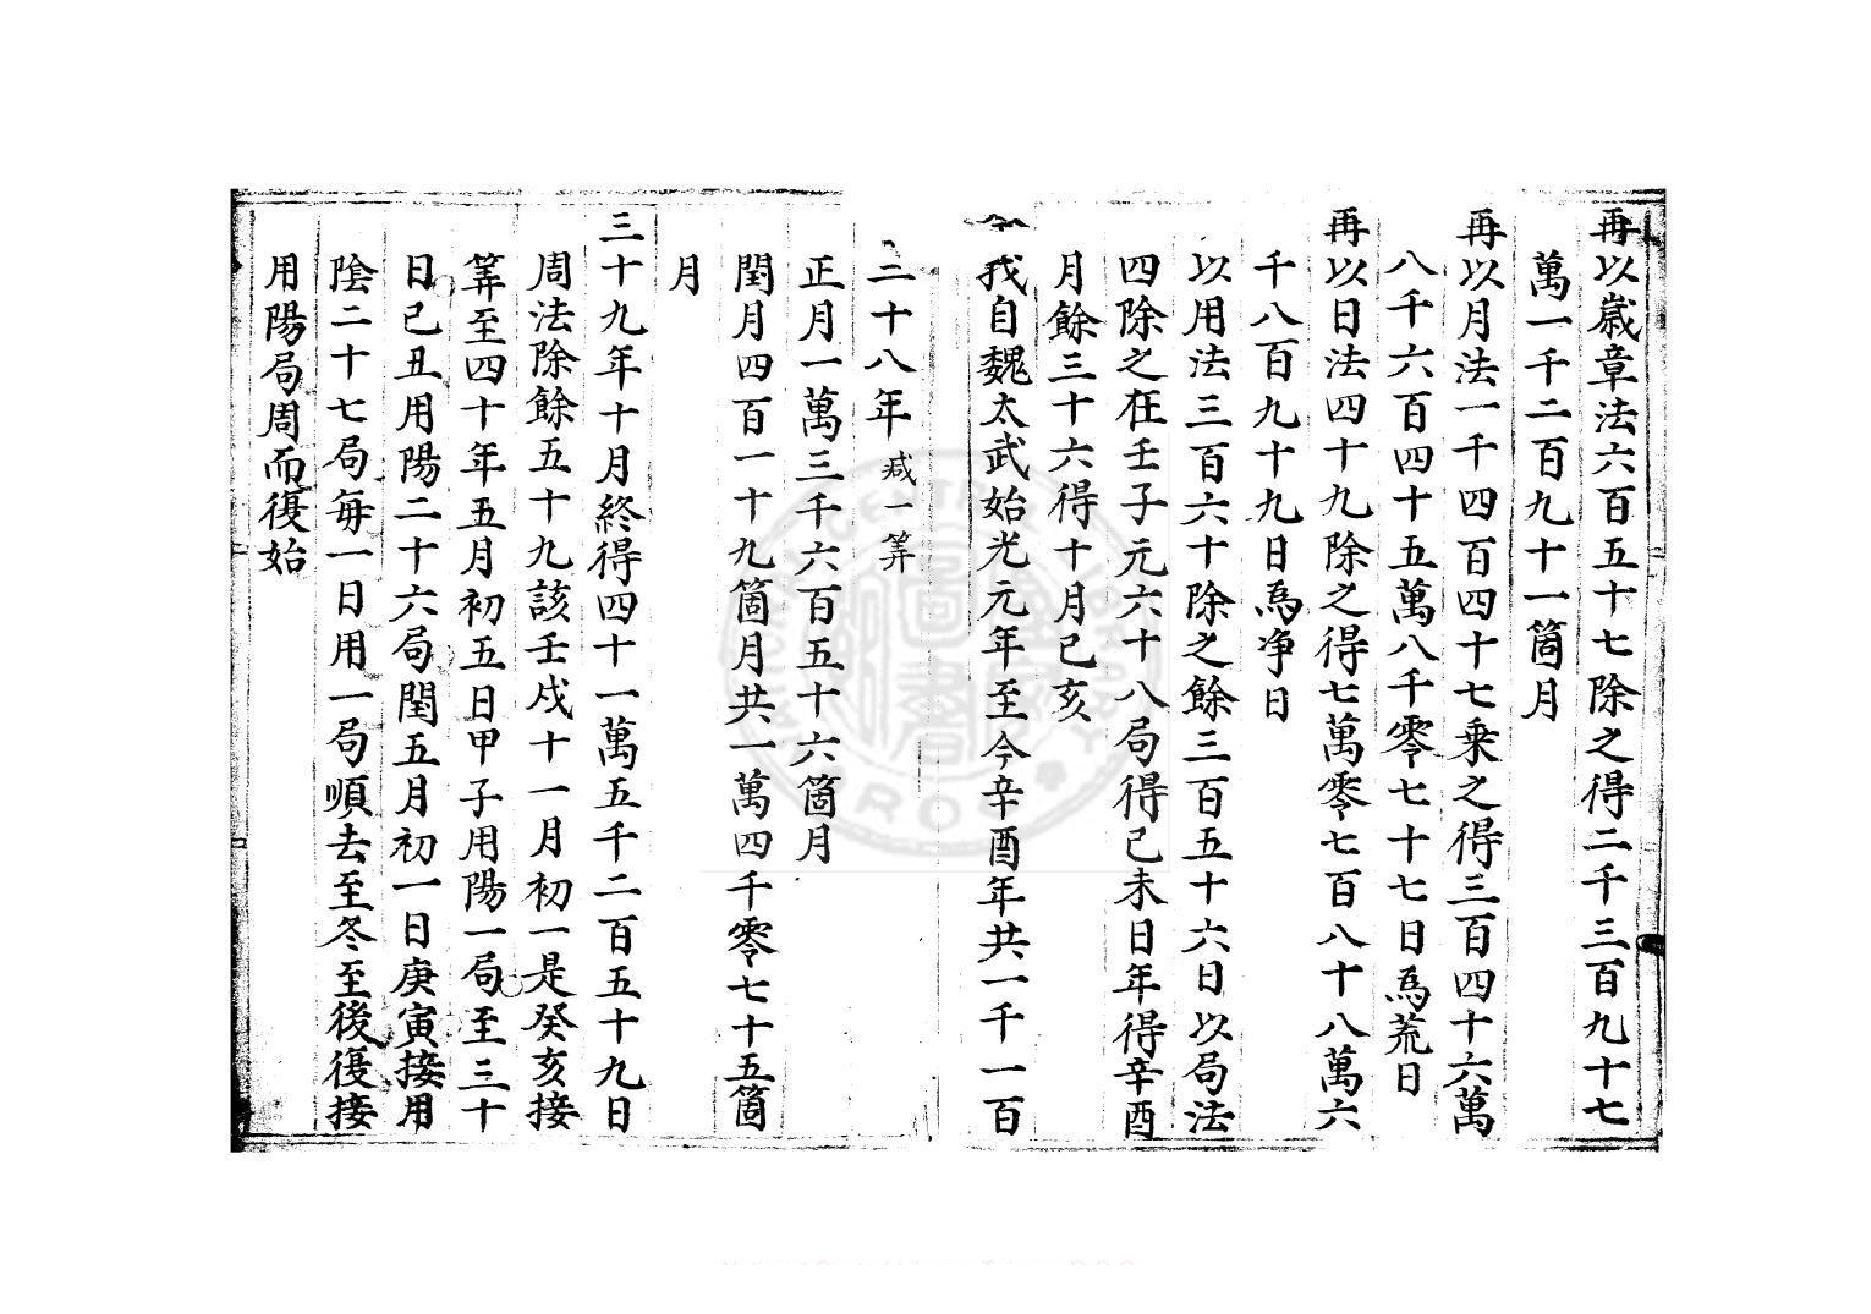 再以嵗章法六百五十七除之得二千三百九十七
萬一千二百九十一箇月
再以月法一千四百四十七乗之得三百四十六萬
八千六百四十五萬八千零七十七日爲荒日
再以日法四十九除之得七萬零七百八十八萬六
千八百九十九日爲净日
以用法三百六十除之餘三百五十六日以局法
四除之在壬子元六十八局得己未日年得辛酉
月餘三十六得十月己亥
我自魏太武始光元年至今辛酉年共一千一百
二十八年 减一筭
正月一萬三千六百五十六箇月
閏月四百一十九箇月共一萬四千零七十五箇
月
三十九年十月終得四十一萬五千二百五十九日
周法除餘五十九該壬戌十一月初一是癸亥接
筭至四十年五月初五日甲子用陽一局至三十
日己丑用陽二十六局閏五月初一日庚寅接用
陰二十七局每一日用一局順去至冬至後復接
用陽局周而復始